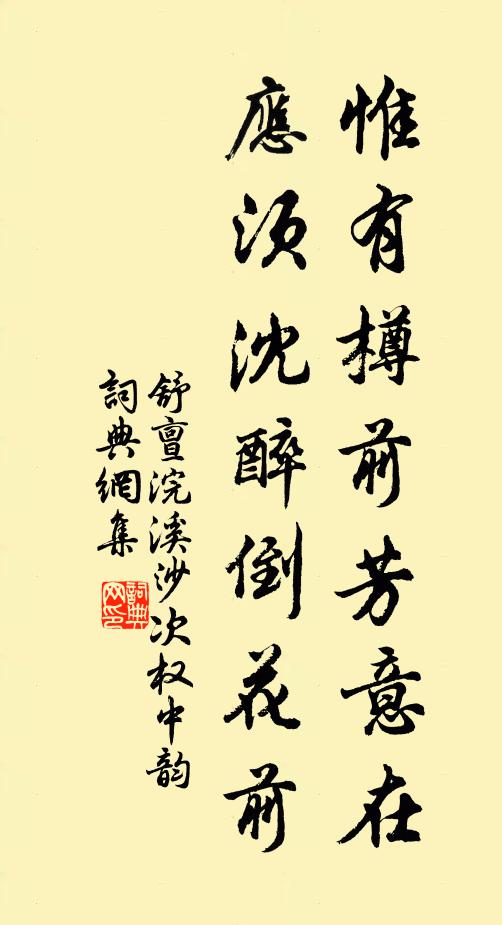 惟有樽前芳意在
應須沈醉倒花前
舒亶浣溪沙次权中韵
詞典網集
詞典
网印